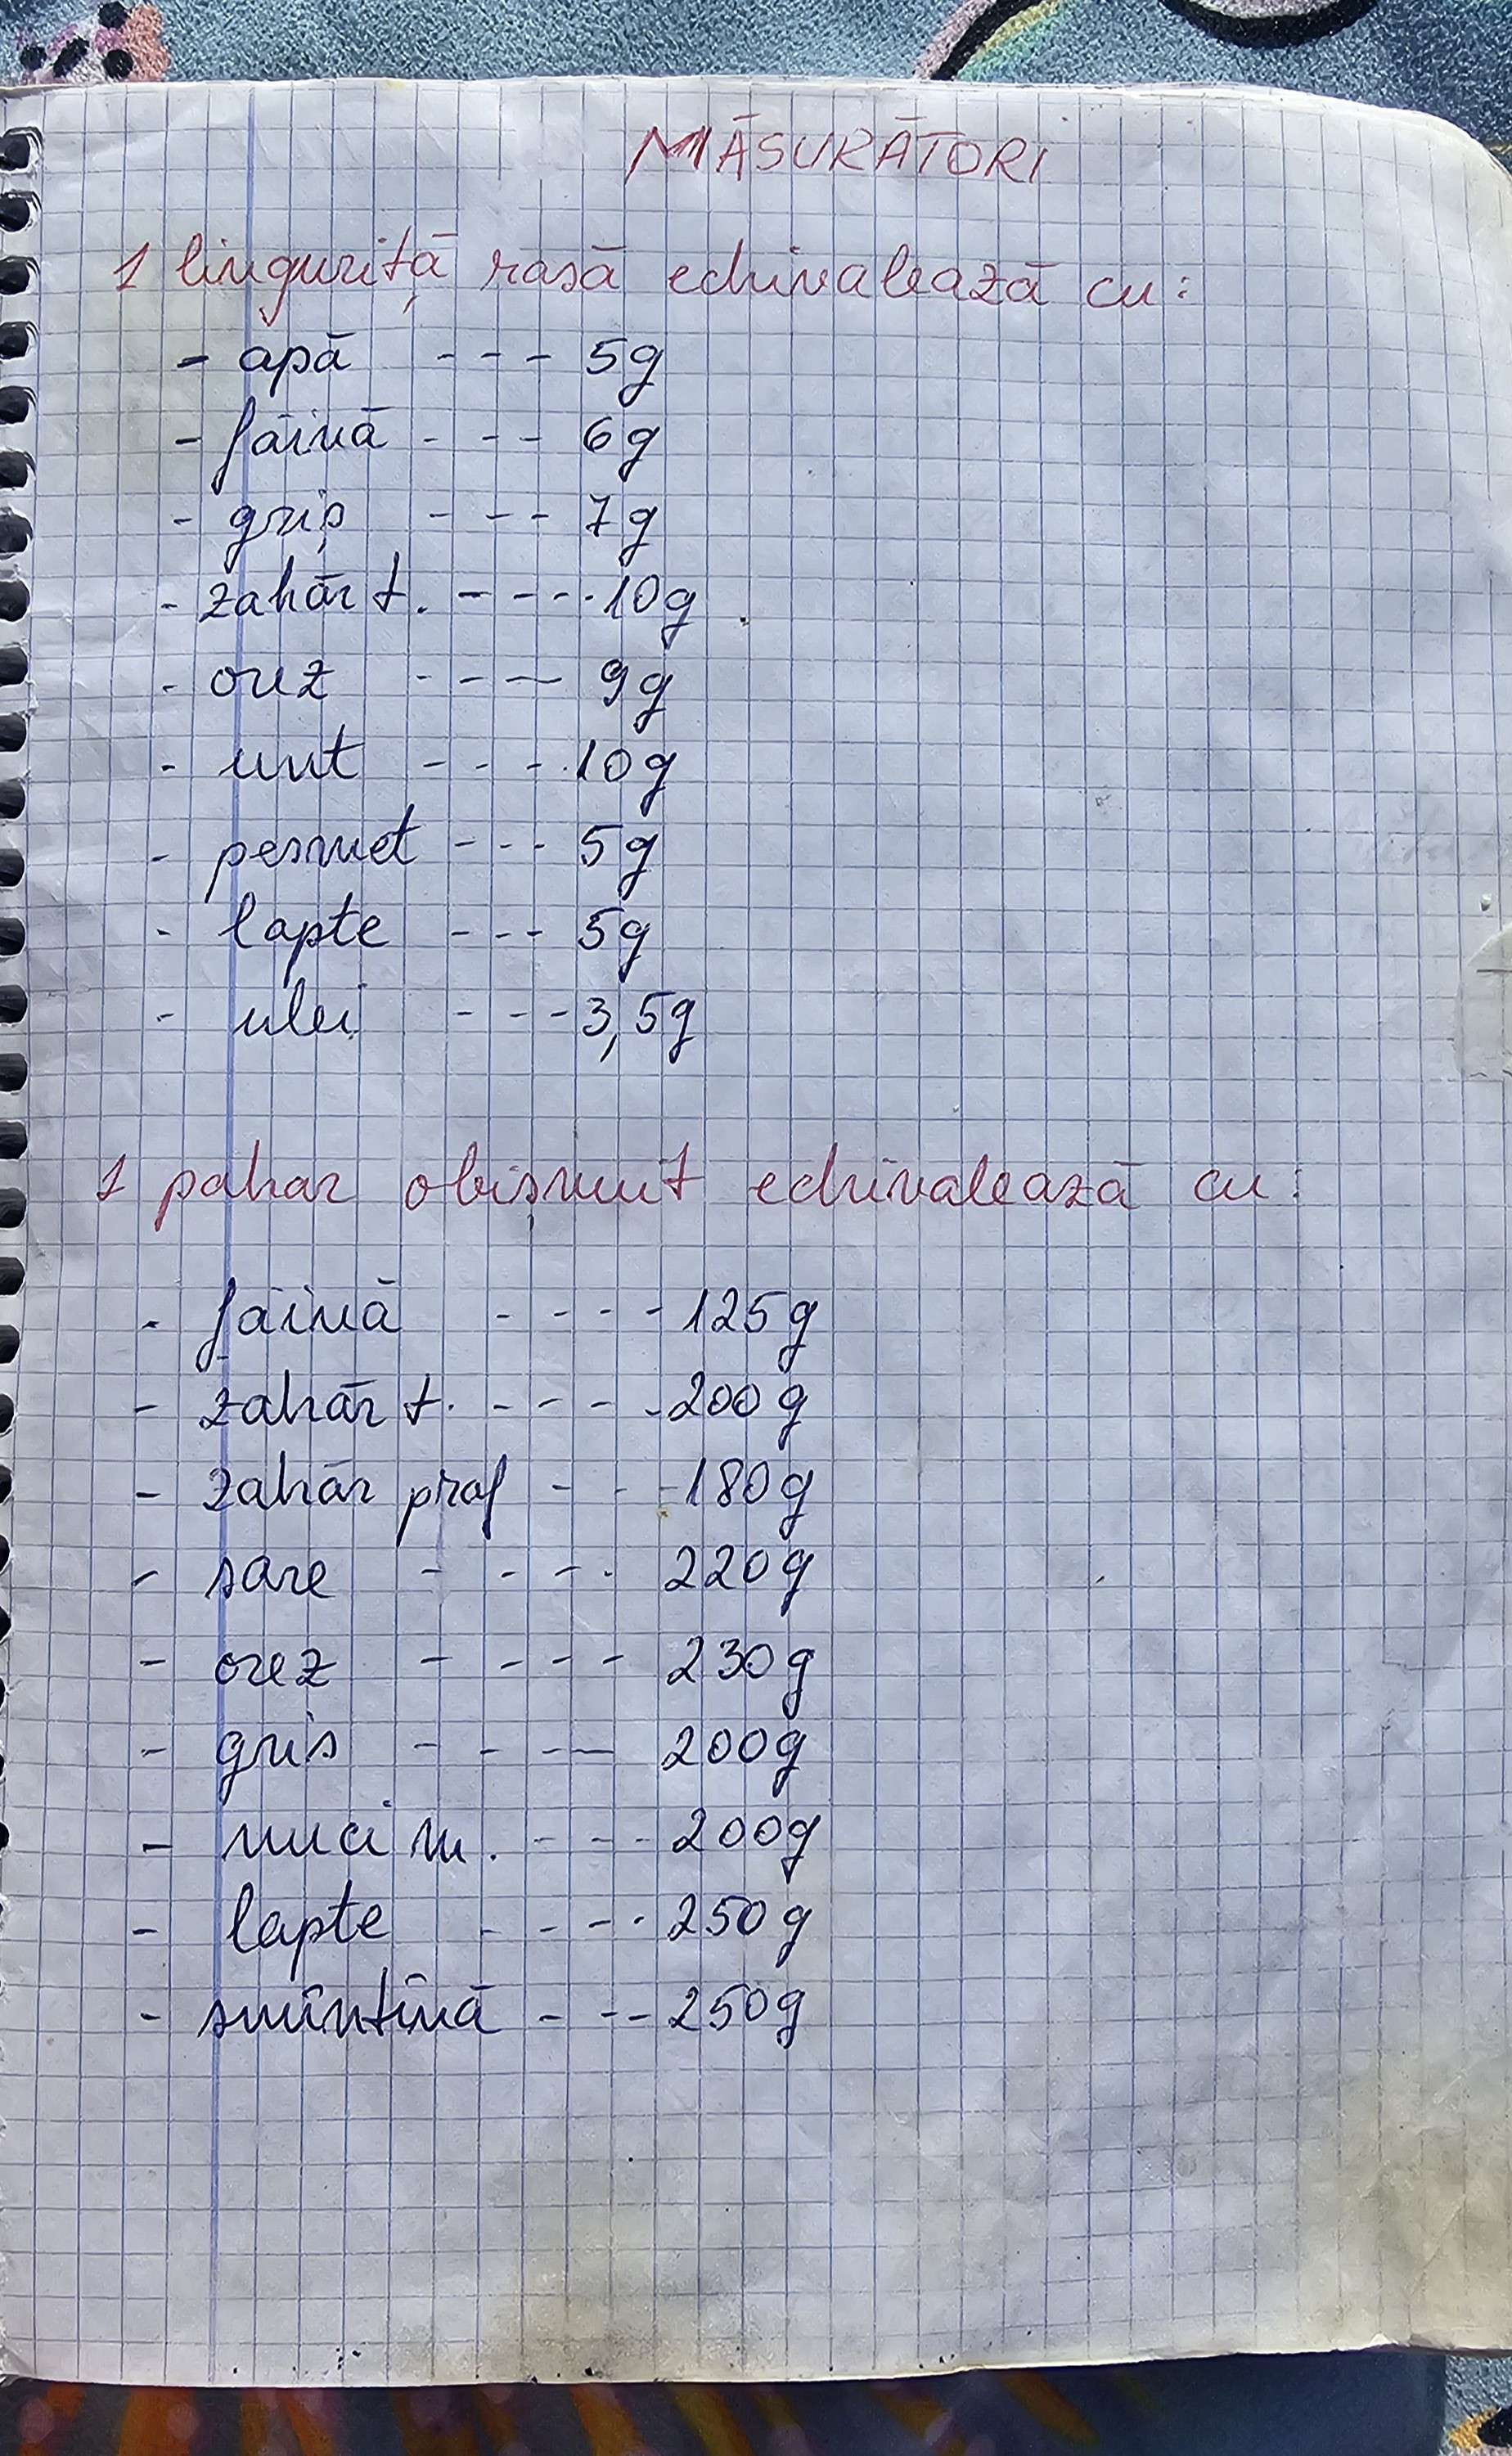 MĂSURĂTORI
1 linguriță rasă echivalează cu:
- apă --- 5g
- făină --- 6g
- griș --- 7g
- zahăr t. ---- 10g
- orez ---- 9g
- unt ---- 10g
- pesmet --- 5g
- lapte --- 5g
- ulei --- 3,5g
1 pahar obișnuit echivalează cu:
- făină ---- 125g
- zahăr t. ---- 200g
- zahăr praf --- 180g
- sare ---- 220g
- orez ---- 230g
- gris ---- 200g
- nuci m. ---- 200g
- lapte ---- 250g
- smîntînă --- 250g